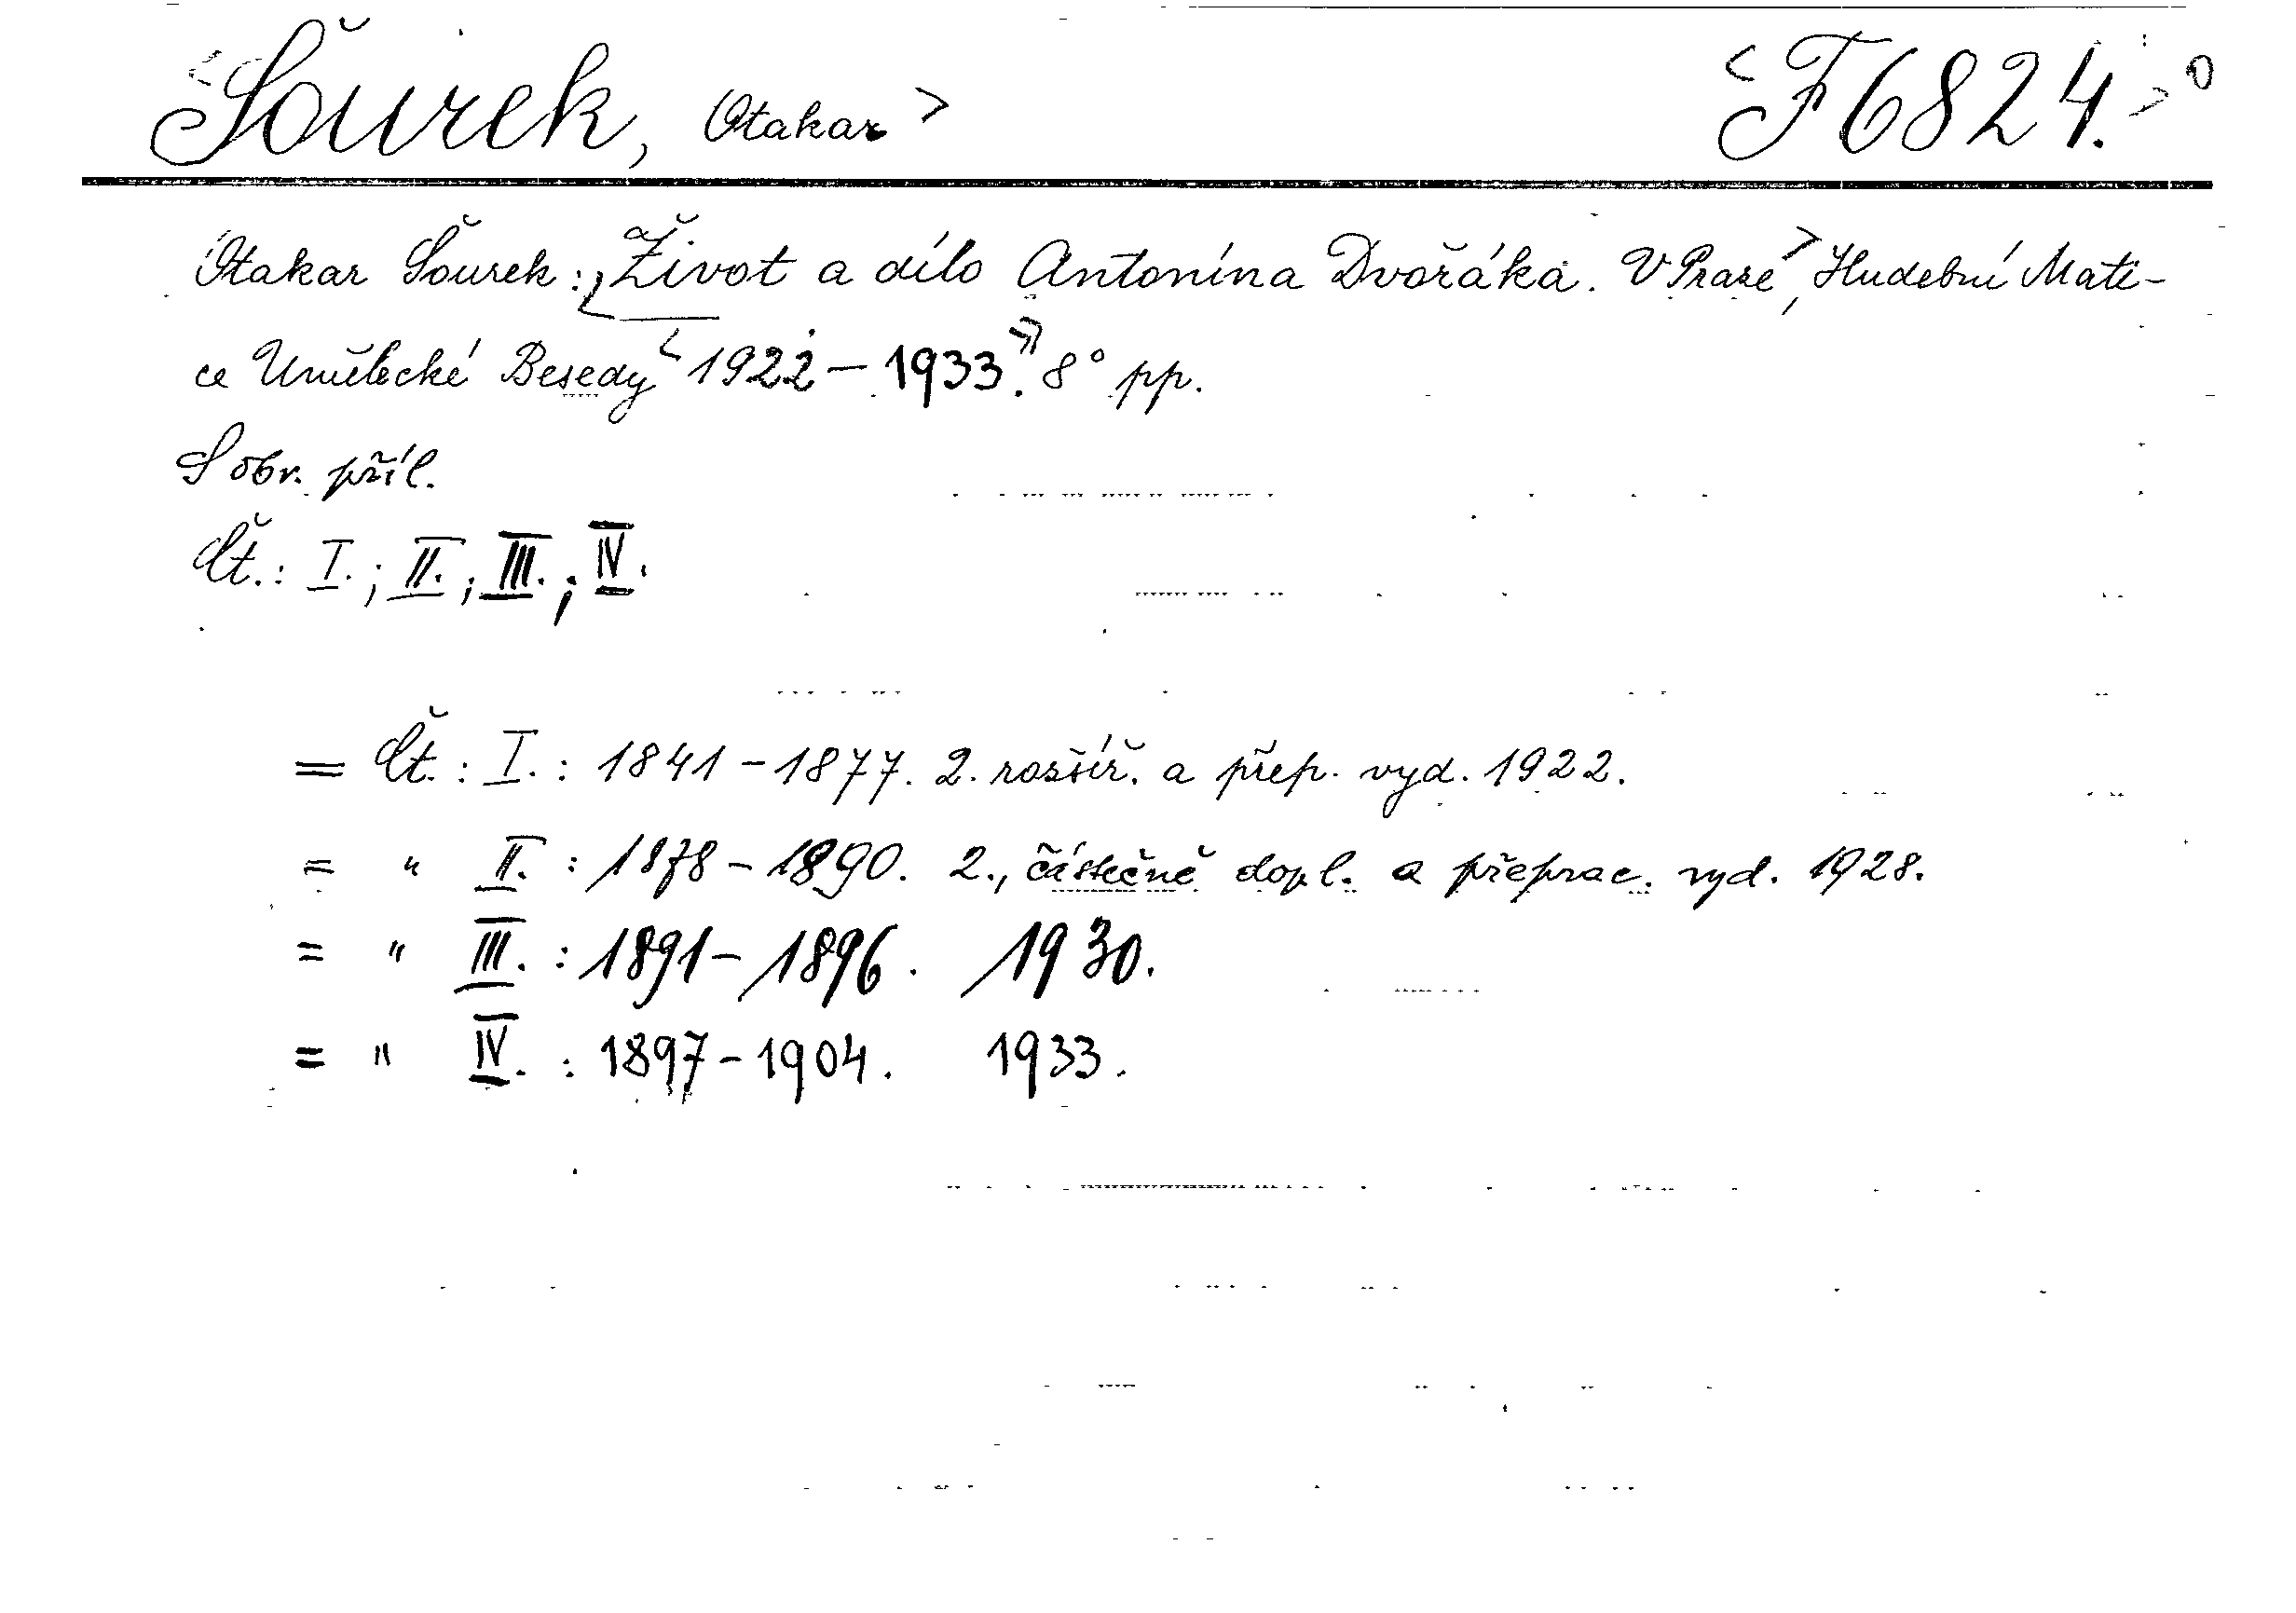 <Šourek, Otakar> <F6824.>°
Otakar Šourek: <Život a dílo Antonína Dvořáka. V Praze>, Hudební Mati-
ce Umělecké Besedy <1922 – 1933.>> 8° pp.
S obr. příl.
Čt.: I.; II.; III.; IV.
= Čt.: I.: 1841 – 1877. 2. rozšíř. a přep. vyd. 1922.
= " II.: 1878 – 1890. 2., částečně dopl. a přeprac. vyd. 1928.
= " III.: 1891 – 1896. 1930.
= " IV.: 1897 – 1904. 1933.